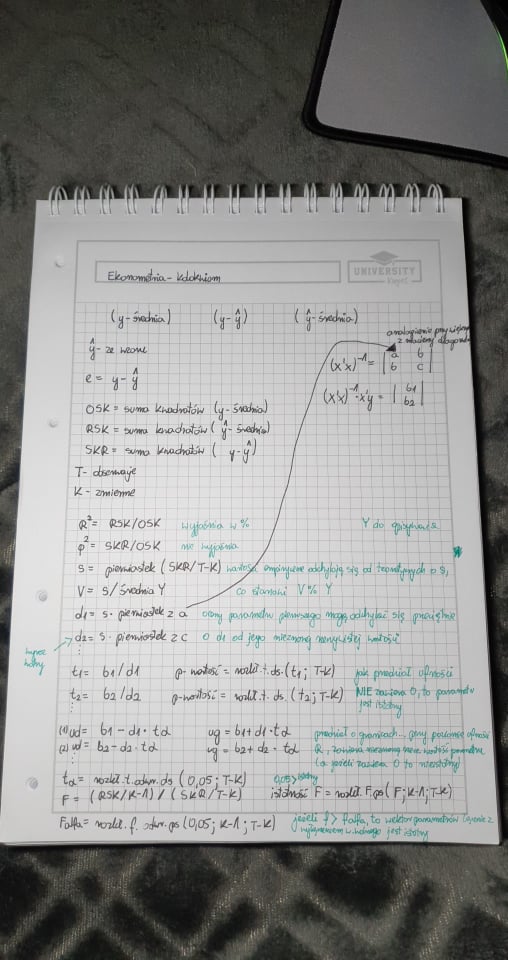 Ekonometria - kolokwium
UNIVERSITY
(y-średnia) (y-ŷ) (ŷ-średnia)
ŷ - ze wzoru
e = y-ŷ
(x'x)⁻¹ = | a b |
| b c |
(x'x)⁻¹·x'y = | b1 |
| b2 |
OSK = suma kwadratów (y-średnia)
RSK = suma kwadratów (ŷ-średnia)
SKR = suma kwadratów (y-ŷ)
T - obserwacje
K - zmienne
R² = RSK/OSK wyjaśnia w % Y do opisywacza
φ² = SKR/OSK nie wyjaśnia
S = pierwiastek (SKR/T-K) wartości empiryczne odchylają się od teoretycznych o S,
V = S/średnia Y co stanowi V% Y
d1 = s·pierwiastek z a oceny parametru pierwszego mogą odchylać się przeciętnie
d2 = s·pierwiastek z c o d1 od jego nieznanej rzeczywistej wartości
⋮
t1 = b1/d1 p-wartość = rozkł.t.ds.(t1; T-K) jak przedział ufności
t2 = b2/d2 p-wartość = rozkł.t.ds.(t2; T-K) NIE zawiera 0, to parametr
⋮ jest istotny
(1) ud = b1-d1·tα ug = b1+d1·tα przedział o granicach... przy poziomie ufności
(2) ud = b2-d2·tα ug = b2+d2·tα
(a jeżeli zawiera 0 to nieistotny)
tα = rozkł.t.odwr.ds (0,05; T-K) 0,05> istotny
F = (RSK/K-1) / (SKR/T-K) istotność F = rozkł.F.ps(F; K-1; T-K)
Falfa = rozkł.f.odwr.ps (0,05; K-1; T-K) jeżeli f > falfa, to wektor parametrów łącznie z
wyłączeniem w.wolnego jest istotny